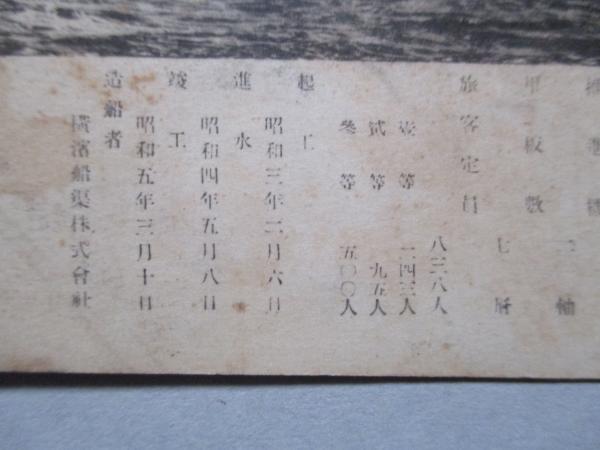 推進機 二軸
甲板數 七層
旅客定員 八三八人
壹等 二四三人
貳等 九五人
參等 五〇〇人
起工 昭和三年二月六日
進水 昭和四年五月八日
竣工 昭和五年三月十日
造船者 橫濱船渠株式會社